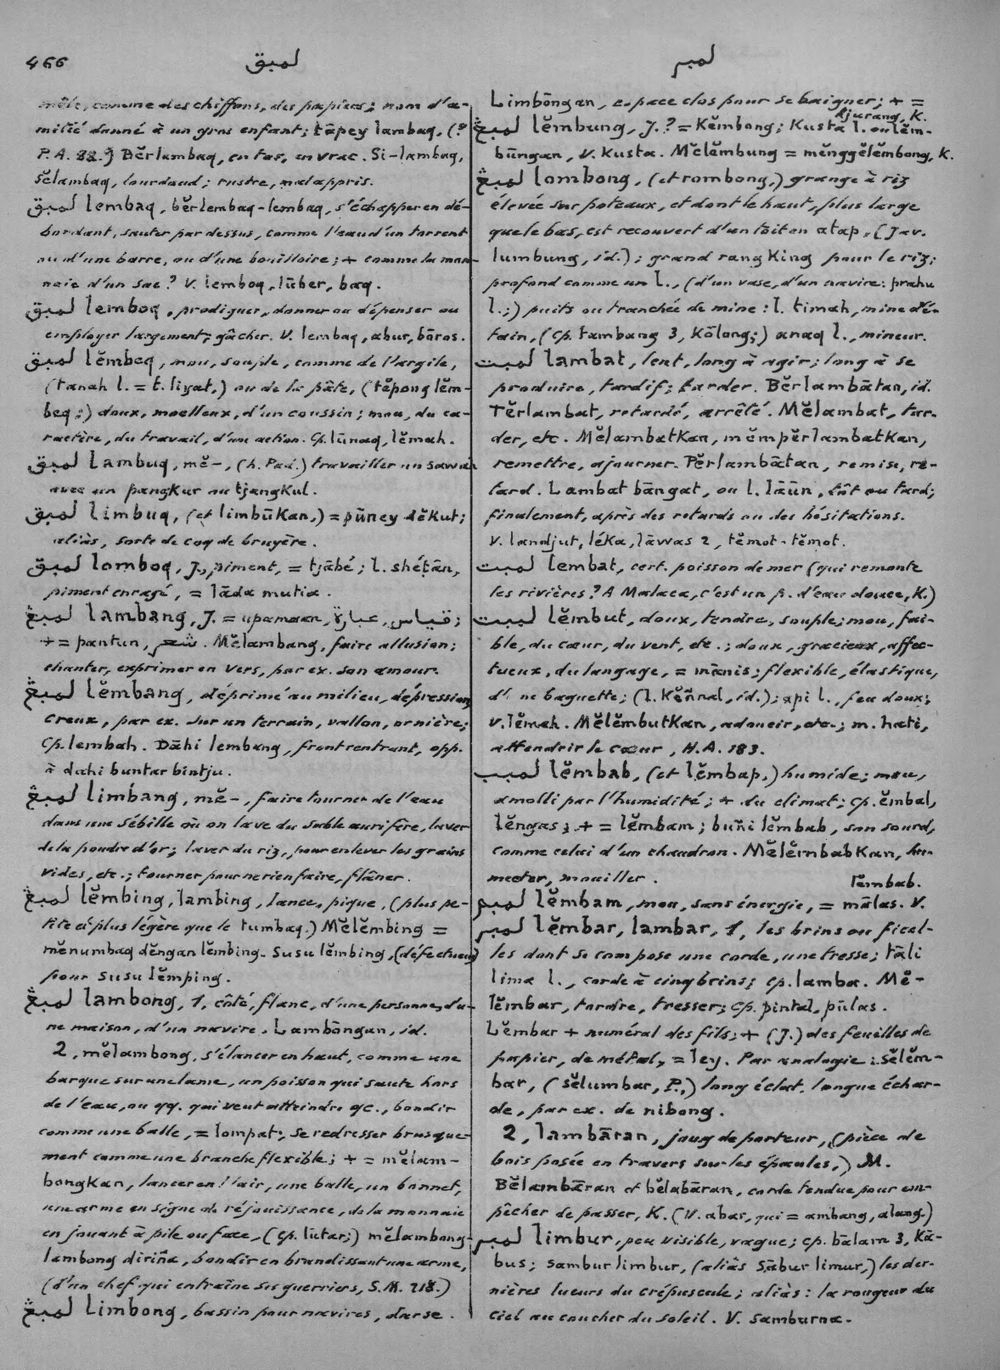 466
لمبق
لمبر
mêle, comme des chiffons, des papiers; nom d'a-
mitié donné à un gros enfant; tāpey lambaq, (?
P.A. 88.) Bĕrlambaq, en tas, en vrac. Si-lambaq,
sĕlambaq, lourdaud; rustre, malappris.
لمبق lembaq, bĕrlembaq-lembaq, s'échapper en dé-
bordant, sauter par dessus, comme l'eau d'un torrent
ou d'une barre, ou d'une bouilloire; + comme la mon-
naie d'un sac? V. lemboq, lūber, baq.
لمبق lemboq, prodiguer, donner ou dépenser ou
employer largement; gâcher. V. lembaq, abur, bāros.
لمبق lĕmbeq, mou, souple, comme de l'argile,
(tanah l. = t. liyat,) ou de la pâte, (tĕpong lĕm-
beq;) doux, moelleux, d'un coussin; mou, du ca-
ractère, du travail, d'une action. Cp. lūnaq, lĕmah.
لمبق lambuq, mĕ-, (h. Pad.) travailler un sawah
avec un pangkur ou tjangkul.
لمبق limbuq, (et limbūkan,) = pūney dĕkut;
aliàs, sorte de coq de bruyère.
لمبق lomboq, J., piment, = tjābé; l. shétān,
piment enragé, = lāda mutia.
لمبڠ lambang, J. = upamaan, قياس, عبارة;
+ = pantun, شعر. Mĕlambang, faire allusion;
chanter, exprimer en vers, par ex. son amour.
لمبڠ lĕmbang, déprimé au milieu, dépression,
creux, par ex. sur un terrain, vallon, ornière;
Cp. lembah. Dāhi lembang, front rentrant, opp.
à dahi buntar bintju.
لمبڠ limbang, mĕ-, faire tourner de l'eau
dans une sébille où on lave du sable aurifère, laver
de la poudre d'or; laver du riz, pour enlever les grains
vides, etc.; tourner pour ne rien faire, flâner.
لمبڠ lĕmbing, lambing, lance, pique, (plus pe-
tite et plus légère que le tumbaq.) Mĕlĕmbing =
mĕnumbaq dĕngan lĕmbing. Susu lĕmbing, (défectueux)
pour susu lĕmping.
لمبڠ lambong, 1, côté, flanc, d'une personne, d'u-
ne maison, d'un navire. Lambōngan, id.
2, mĕlambong, s'élancer en haut, comme une
barque sur une lame, un poisson qui saute hors
de l'eau, ou qq. qui veut atteindre qc., bondir
comme une balle, = lompat; se redresser brusque-
ment comme une branche flexible; + = mĕlam-
bongkan, lancer en l'air, une balle, un bonnet,
une arme en signe de réjouissance, de la monnaie
en jouant à pile ou face, (Cp. lūtar;) mĕlambong-
lambong dirīña, bondir en brandissant une arme,
(d'un chef qui entraîne ses guerriers, S.M. 218.)
لمبڠ limbong, bassin pour navires, darse.
Limbōngan, espace clos pour se baigner; + =
djurang, K.
لمبڠ lĕmbung, J.? = Kĕmbong; Kusta l. ou lĕm-
būngan, V. kusta. Mĕlĕmbung = mĕnggĕlĕmbong, K.
لمبڠ lombong, (et rombong,) grange à riz
élevée sur poteaux, et dont le haut, plus large
que le bas, est recouvert d'un toit en atap, (Jav.
lumbung, id.); grand rangking pour le riz;
profond comme un l., (d'un vase, d'un navire: prahu
l.;) puits ou tranchée de mine: l. timah, mine d'é-
tain, (Cp. tambang 3, Kōlong;) anaq l., mineur.
لمبت lambat, lent, long à agir; long à se
produire, tardif; tarder. Bĕrlambātan, id.
Tĕrlambat, retardé, arrêté. Mĕlambat, tar-
der, etc. Mĕlambatkan, mĕmpĕrlambatkan,
remettre, ajourner. Pĕrlambātan, remise, re-
tard. Lambat bāngat, ou l. lāūn, tôt ou tard;
finalement, après des retards ou des hésitations.
V. landjut, léka, lāwas 2, tĕmot-tĕmot.
لمبت lembat, cert. poisson de mer (qui remonte
les rivières? A Malaca, c'est un p. d'eau douce, K.)
لمبت lĕmbut, doux, tendre, souple; mou, fai-
ble, du cœur, du vent, etc.; doux, gracieux, affec-
tueux, du langage, = mānis; flexible, élastique,
d'une baguette; (l. Kĕñnal, id.); api l., feu doux;
V. lĕmah. Mĕlĕmbutkan, adoucir, etc.; m. hati,
attendrir le cœur, H.A. 183.
لمبب lĕmbab, (et lĕmbap,) humide; mou,
amolli par l'humidité; + du climat; cp. ĕmbal,
lĕngas; + = lĕmbam; buñi lĕmbab, son sourd,
comme celui d'un chaudron. Mĕlĕmbabkan, hu-
mecter, mouiller.
lĕmbab.
لمبم lĕmbam, mou, sans énergie, = mālas. V.
لمبر lĕmbar, lambar, 1, les brins ou ficel-
les dont se compose une corde, une tresse; tāli
lima l., corde à cinq brins; cp. lamba. Mĕ-
lĕmbar, tordre, tresser; cp. pintal, pūlas.
Lĕmbar + numéral des fils; + (J.) des feuilles de
papier, de métal, = ley. Par analogie: sĕlĕm-
bar, (sĕlumbar, P.,) long éclat, longue échar-
de, par ex. de nibong.
2, lambāran, joug de porteur, (pièce de
bois posée en travers sur les épaules,) M.
Bĕlambāran et bĕlabāran, corde tendue pour em-
pêcher de passer, K. (V. abar, qui = ambang, alang.)
لمبر limbur, peu visible, vague; cp. bālam 3, Kā-
bus; sambur limbur, (aliàs sābur limur,) les der-
nières lueurs du crépuscule; aliàs: la rougeur du
ciel au coucher du soleil. V. samburna.